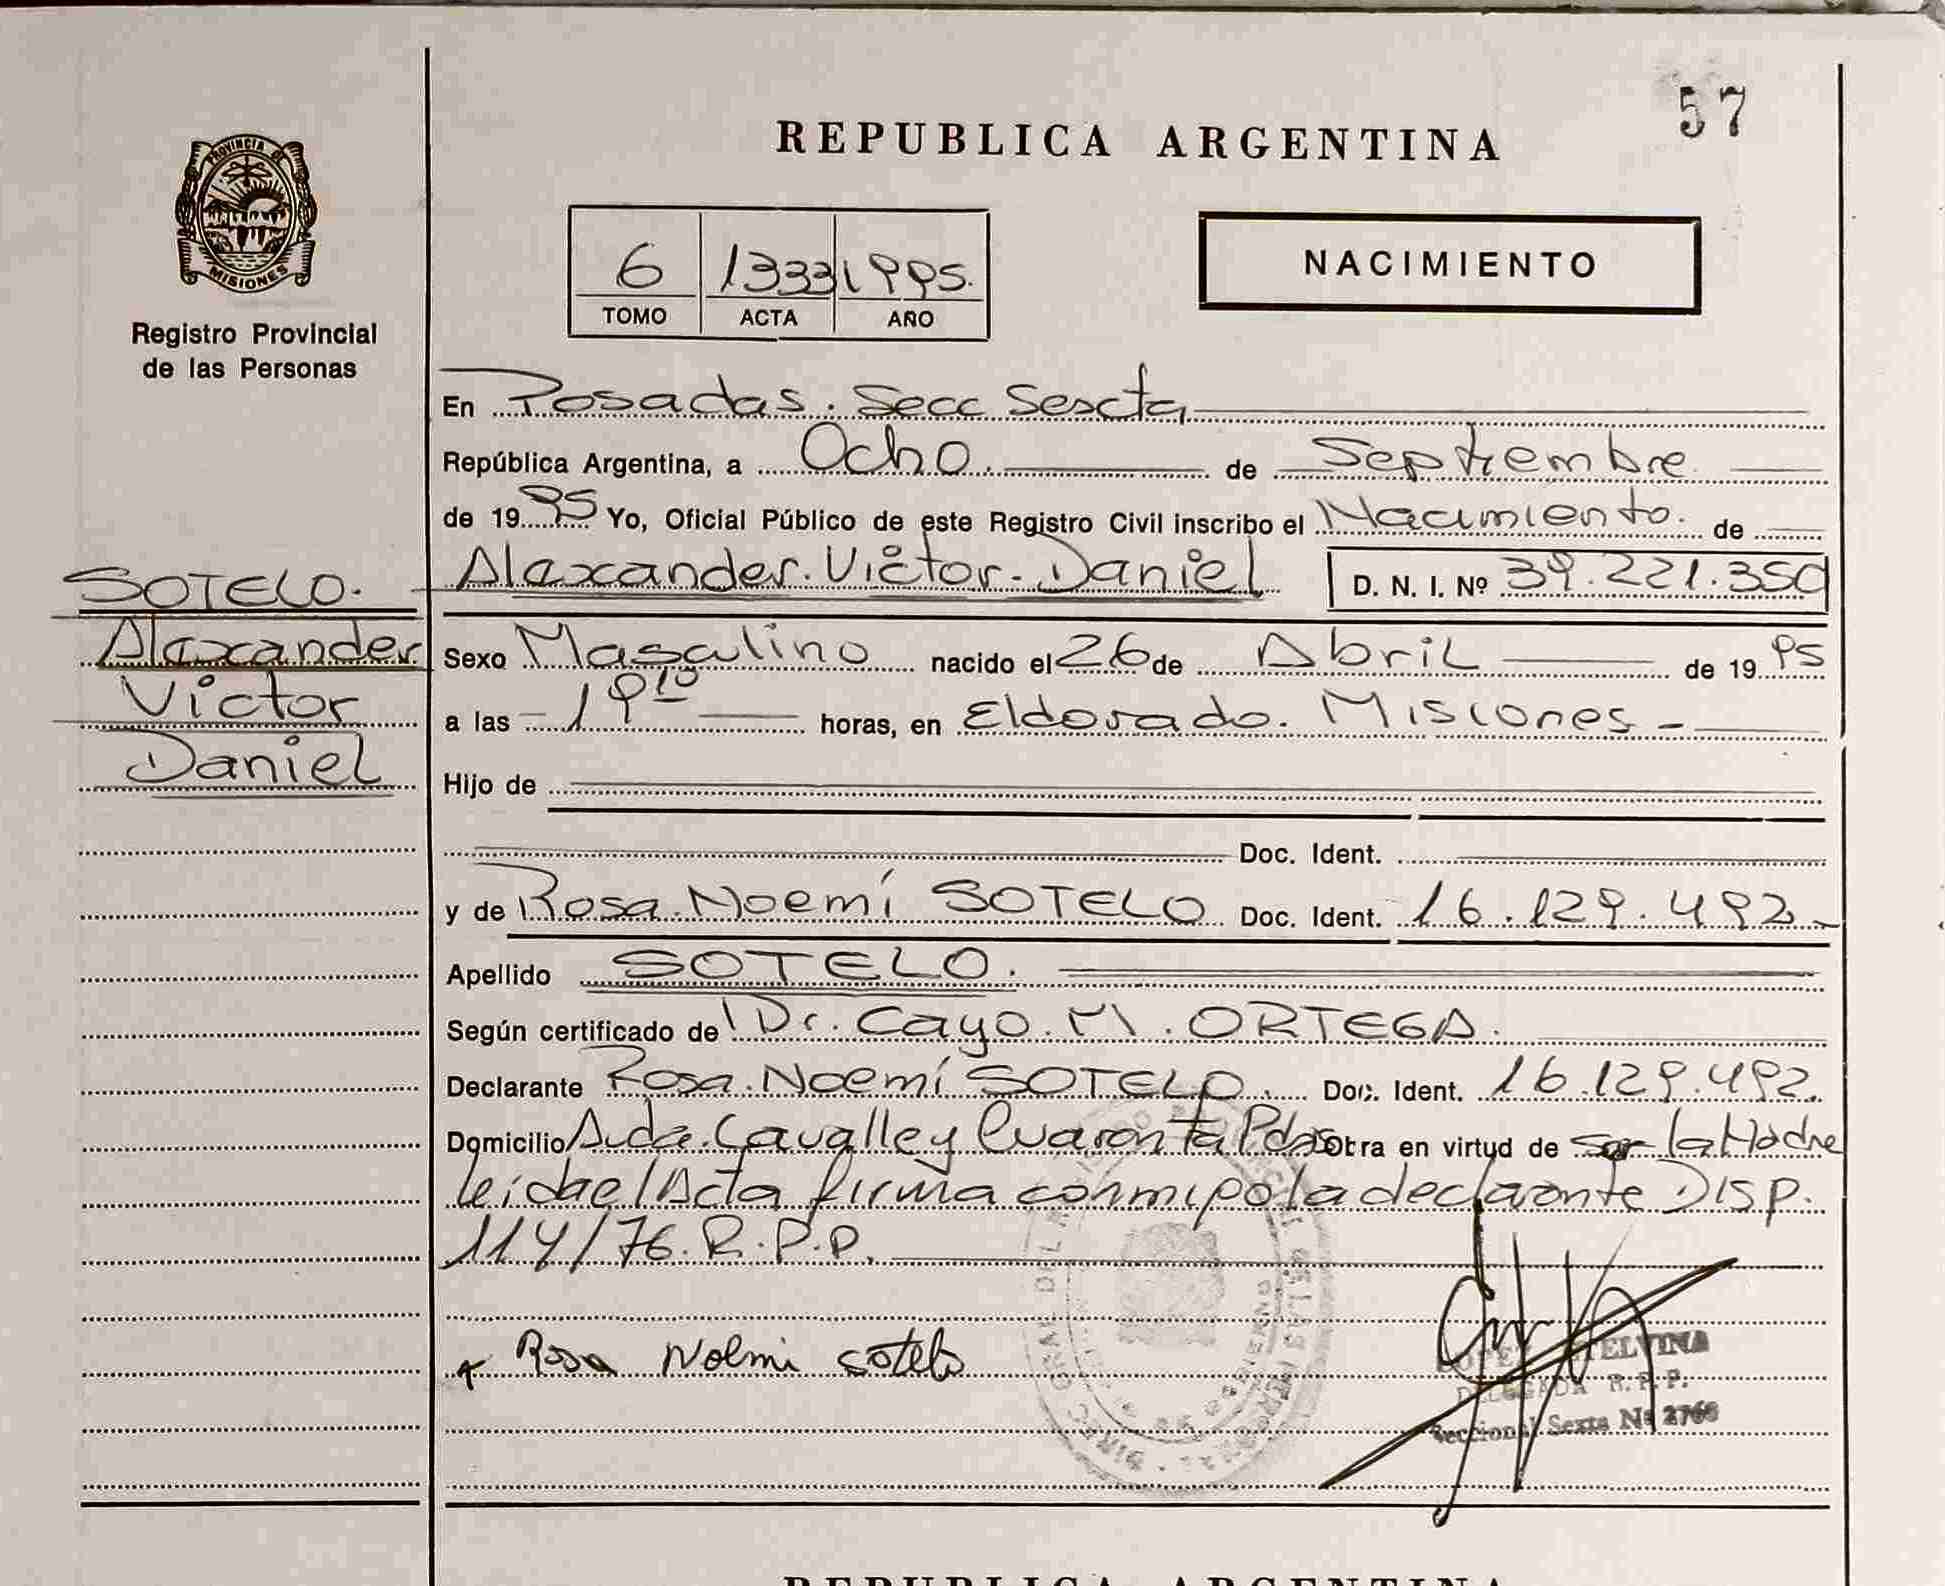 57
REPUBLICA ARGENTINA
PROVINCIA DE
MISIONES
Registro Provincial
de las Personas
6 1333 1995.
TOMO ACTA AÑO
NACIMIENTO
En Posadas. Secc Sexcta
República Argentina, a Ocho. de Septiembre
de 1995 Yo, Oficial Público de este Registro Civil inscribo el Nacimiento. de
Alaxander. Victor. Daniel D. N. I. Nº 39.221.350
SOTELO.
Alaxander
Victor
Daniel
Sexo Masculino nacido el 26 de Abril de 1995
a las 19 10 horas, en Eldorado. Misiones -
Hijo de
Doc. Ident.
y de Rosa. Noemí SOTELO Doc. Ident. 16.129.492.-
Apellido SOTELO.
Según certificado de Dr. Cayo. M. ORTEGA.
Declarante Rosa. Noemí SOTELO. Doc. Ident. 16.129.492.
Domicilio Avda. Cavalle y Cuaronta Pdas Obra en virtud de ser la Madre
leída el Acta firma conmigo la declarante Disp.
114/76. R.P.P.
Rosa Nolmi sotelo
TELVINA
DELEGADA R. P. P.
Seccional Sexta Nº 2768
REPUBLICA ARGENTINA